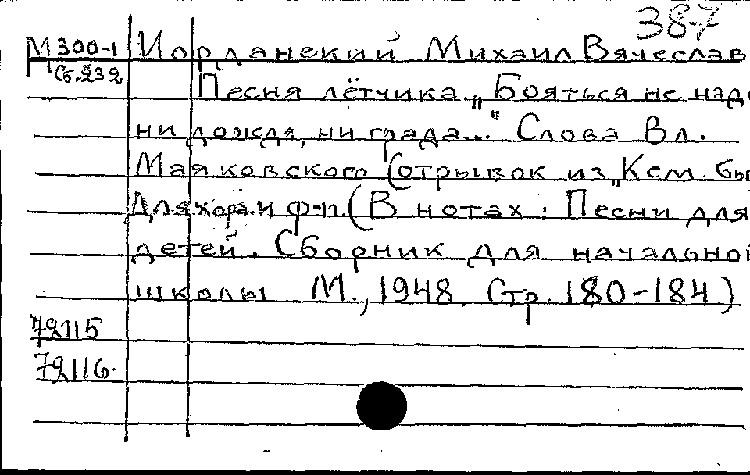 387
М 300-1 Иорданский Михаил Вячеслав
Сб.232 Песня лётчика „Бояться не надо
ни дождя, ни града..." Слова Вл.
Маяковского (отрывок из „Кем бы
Для хора и ф-п. (В нотах: Песни для
детей. Сборник для начальной
школы М., 1948. Стр. 180-184)
72115
72116.